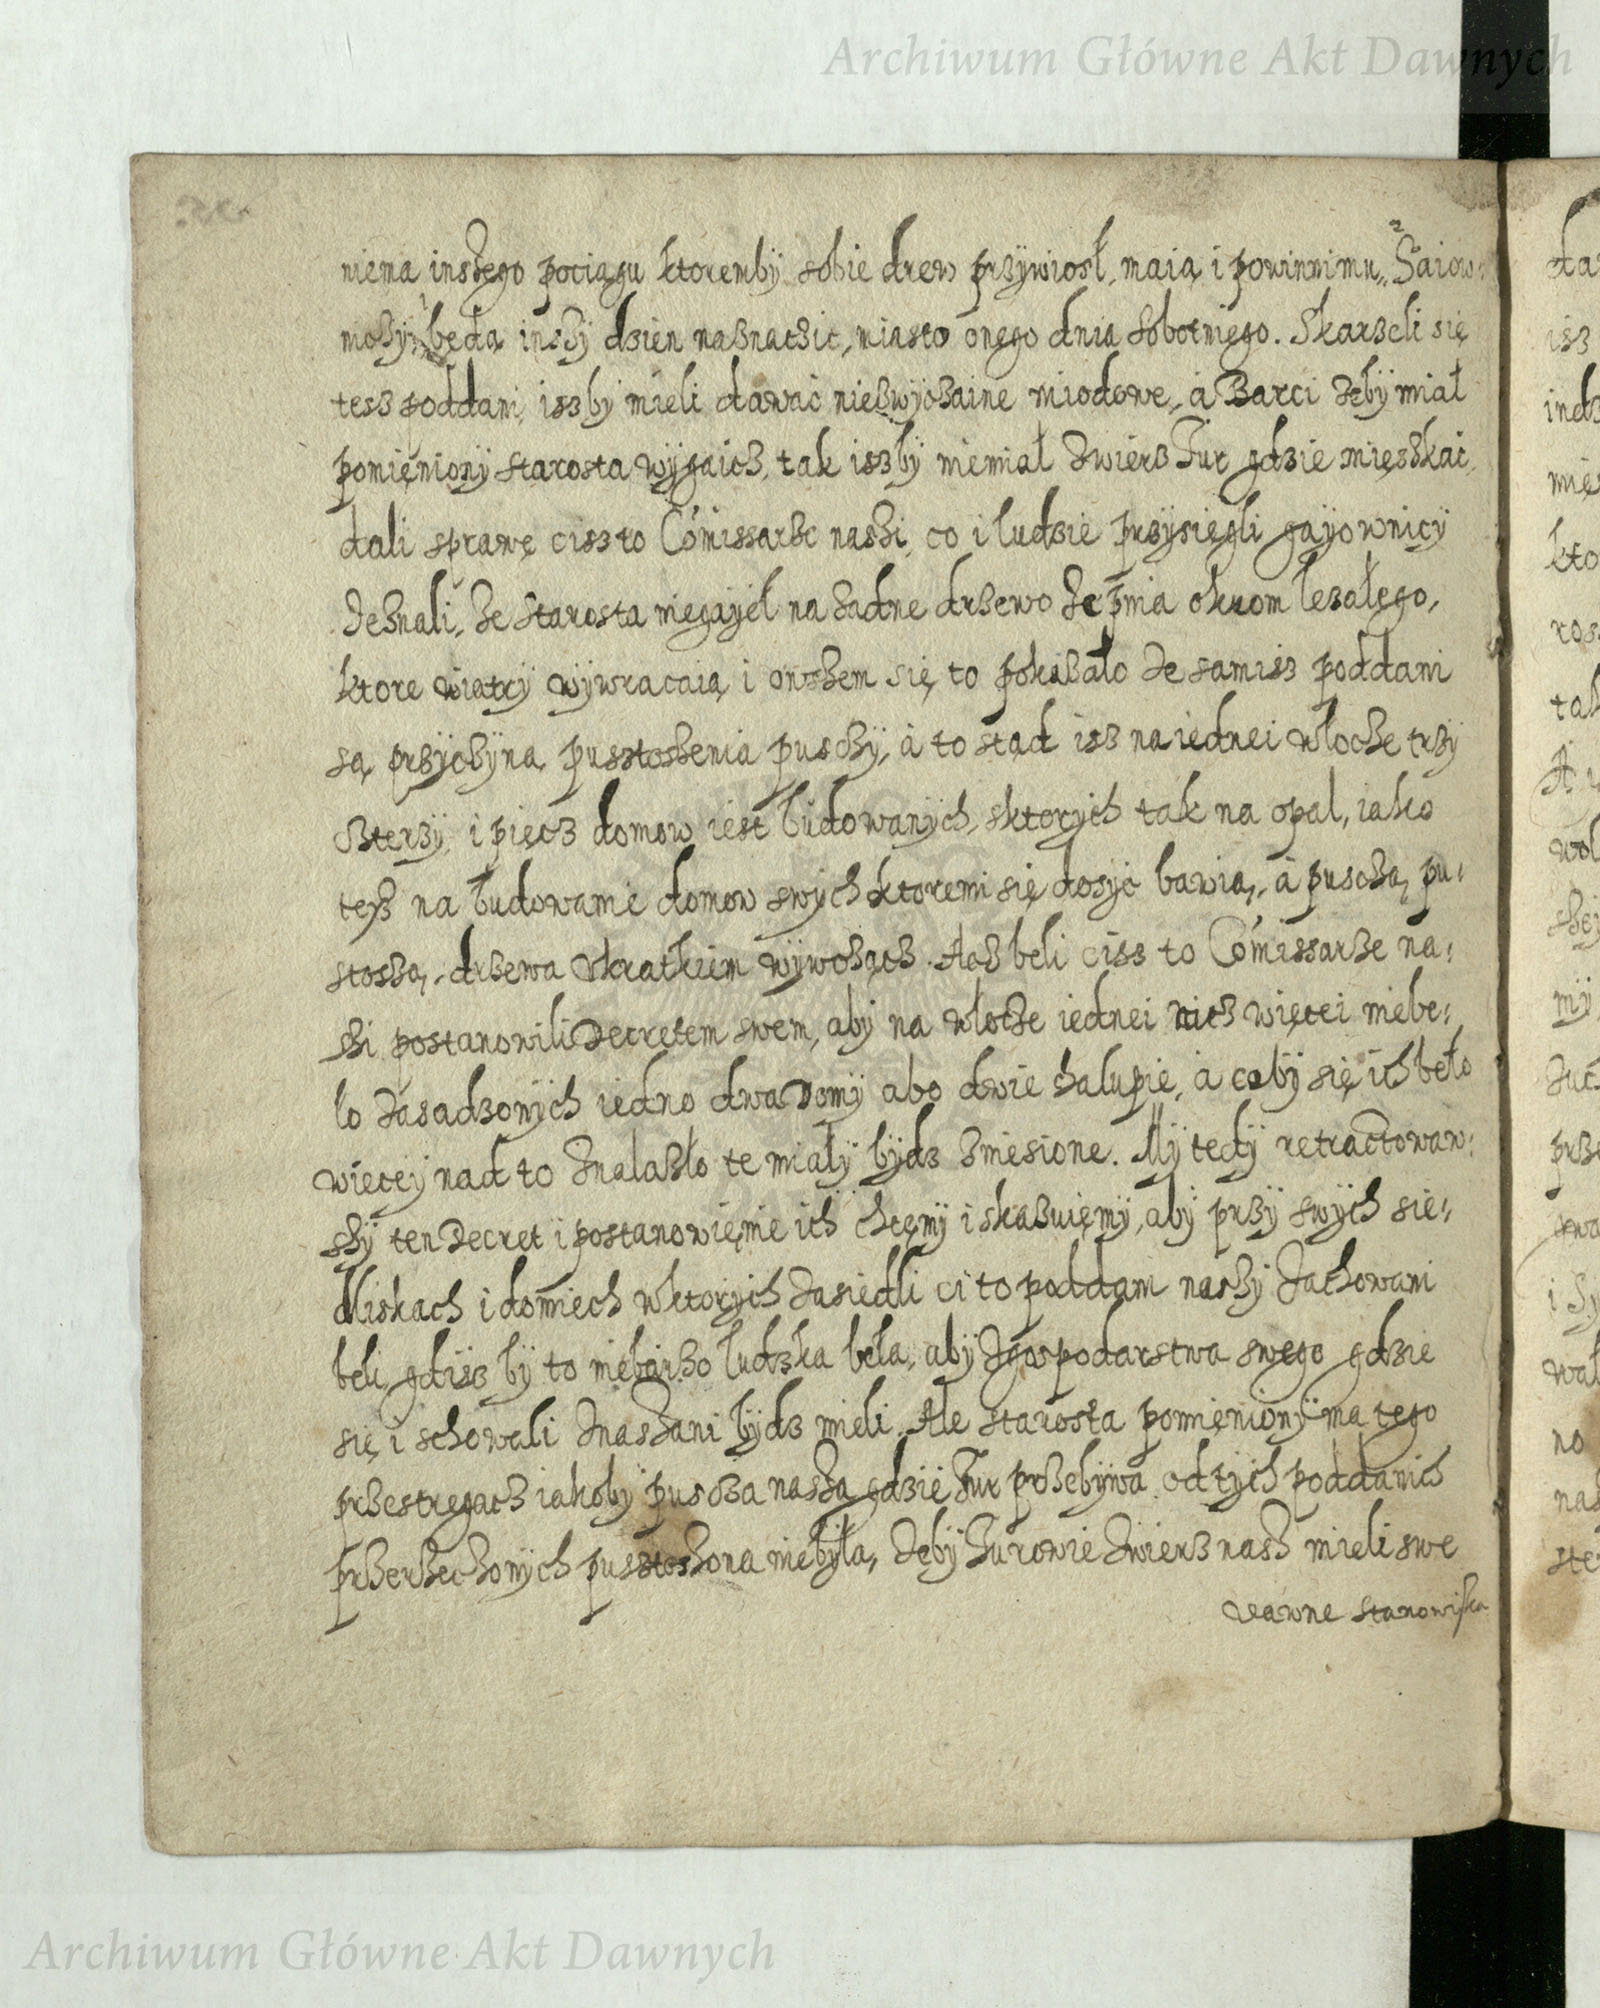 Archiwum Główne Akt Dawnych
niema inszego pociągu ktoremby sobie drew przywiosł, maią i powinni mu, 2 Gaiow=
niczy 1 będą inszy dzien naznaczic, miasto onego dnia sobotniego. Skarzeli się
tesz poddani, iszby mieli dawać niezwyczaine miodowe, à Barci żeby miał
pomięniony starosta wygaicz, tak iszby niemiał zwierz Tur gdzie mięszkać,
dali sprawę cisz to Comissarze naszi, co i ludzie przysięgli gayownicy
zeznali, że starosta niegayeł na żadne drzewo ze pnia okrom leżałego,
ktore wiatry wywracaią i owszem się to pokazało ze samisz poddani
są przyczyną pustoszenia pusczy, à to stąd isz na iednei włocze trzy
cztery i pięcz domow iest budowanych, sktorych tak na opal, iako
tesz na budowanie domow swych ktoremi się dosyć bawią, à puszczą pu=
stoszą, drzewa vkratkiem wywożącz. Acz beli cisz to Comissarze na=
szi postanowili Decretem swem, aby na włocze iednei nicz więcei niebe=
ło zasadzonych iedno dwa Domy abo dwie chalupie, à coby się ich beło
więcey nad to znalazło te miały bydz zniesione. My tedy retractowaw=
szy ten Decret i postanowięnie ich chcęmy i skazuięmy, aby przy swych sie=
dliskach i domiech wktorych zasiedli ci to poddani naszy zachowani
beli, gdysz by to niebarzo ludzka beła, aby zgospodarstwa swego gdzie
się i schowali znaszani bydz mieli. Ale starosta pomięniony ma tego
przestregacz iakoby puscza nasza gdzie Tur przebywa od tych poddanich
przerzeczonych pustoszona niebyła, zeby Turowie zwierz nasz mieli swe
dawne stanowiska
Archiwum Główne Akt Dawnych